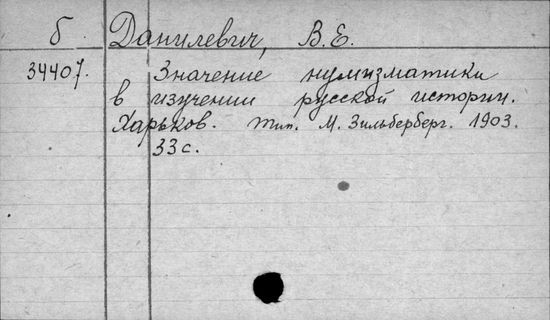 Б Данилевич, В.Е.
34407. Значение нумизматики
в изучении русской истории.
Харьков. тип. М. Зильберберг. 1903.
33 с.